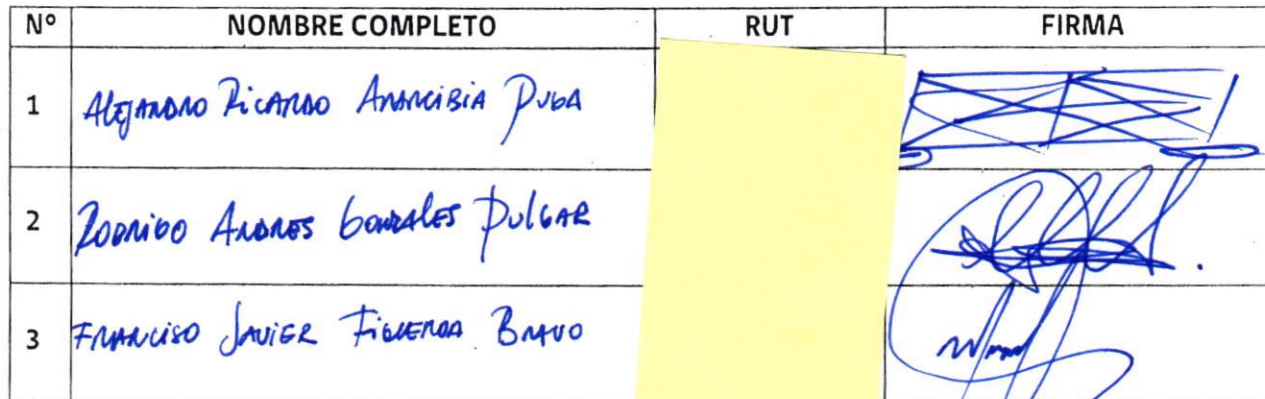 Nº NOMBRE COMPLETO RUT FIRMA
1 Alejandro Ricardo Arancibia Puga
2 Rodrigo Andres Gonzales Pulgar
3 Franciso Javier Figueroa Bravo